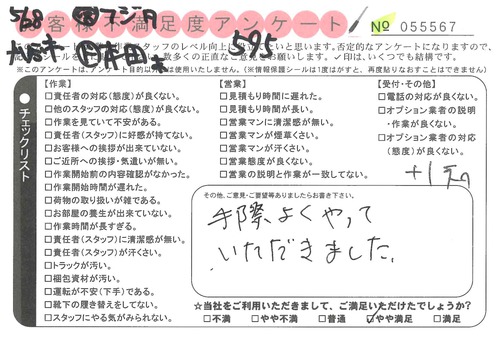 5/68
お客様不満足度アンケート
№ 055567
595
スタッフのレベル向上
と思います。否定的なアンケートになりますので、
数多くの正直なご意見をお願いします。✓印は、いくつでも結構です。
※このアンケートは、アンケート目的以外には使用いたしません。(※情報保護シールは1度はがすと、再度貼りなおすことはできません。)
チェックリスト
【作業】
□責任者の対応(態度)が良くない。
□他のスタッフの対応(態度)が良くない。
□作業を見ていて不安がある。
□責任者(スタッフ)に好感が持てない。
□お客様への挨拶が出来ていない。
□ご近所への挨拶・気遣いが無い。
□作業開始前の内容確認がなかった。
□作業開始時間が遅れた。
□荷物の取り扱いが雑である。
□お部屋の養生が出来ていない。
□作業時間が長すぎる。
□責任者(スタッフ)に清潔感が無い。
□責任者(スタッフ)が汗くさい。
□トラックが汚い。
□梱包資材が汚い。
□運転が不安(下手)である。
□靴下の履き替えをしてない。
□スタッフにやる気がみられない。
【営業】
□見積もり時間に遅れた。
□見積もり時間が長い。
□営業マンに清潔感が無い。
□営業マンが煙草くさい。
□営業マンが汗くさい。
□営業態度が良くない。
□営業の説明と作業が一致してない。
【受付・その他】
□電話の対応が良くない。
□オプション業者の説明
・作業が良くない。
□オプション業者の対応
(態度)が良くない。
その他、ご意見・ご要望等ありましたらお書き下さい。
手際よくやって
いただきました。
☆当社をご利用いただきまして、ご満足いただけたでしょうか?
□不満 □やや不満 □普通 ☑やや満足 □満足